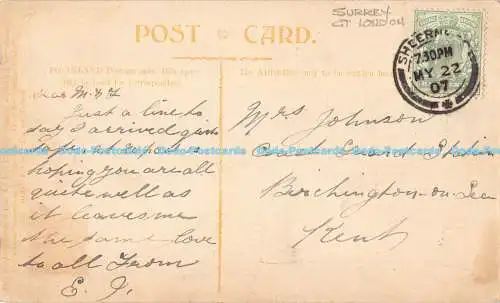 SURREY
GT LONDON
POST CARD.
SHEERNESS
7.30PM
MY 22
07
For INLAND Postage only this space
The Address only to be written here
Dear M & F
Just a line to
say I arrived quite
hoping you are all
quite well as
it leaves me
the same love
to all From
E. J.
Mrs Johnson
Coast Guard Station
Birchington-on-Sea
Kent